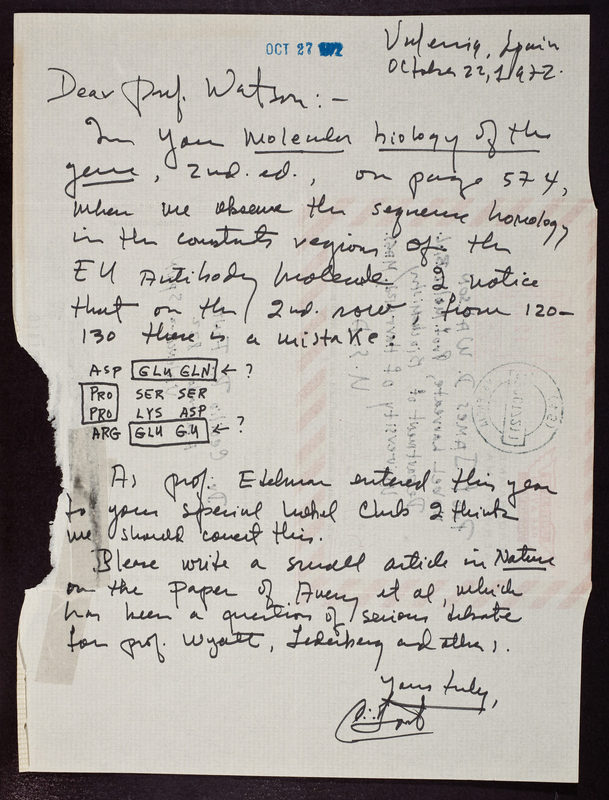 OCT 27 1972
Valencia, Spain
October 22, 1972.
Dear Prof. Watson:-
In your Molecular biology of the
gene, 2nd. ed., on page 574,
when we observe the sequence homology
in the constants regions of the
EU Antibody molecule I notice
that on the 2nd. row from 120-
130 there is a mistake.
ASP GLU GLN ← ?
PRO SER SER
PRO LYS ASP
ARG GLU GLU ← ?
As prof. Edelman entered this year
to your special Nobel Club I think
we should correct this.
Please write a small article in Nature
on the Paper of Avery et al, which
has been a question of serious debate
for prof. Wyatt, Lederberg and others.
Yours truly,